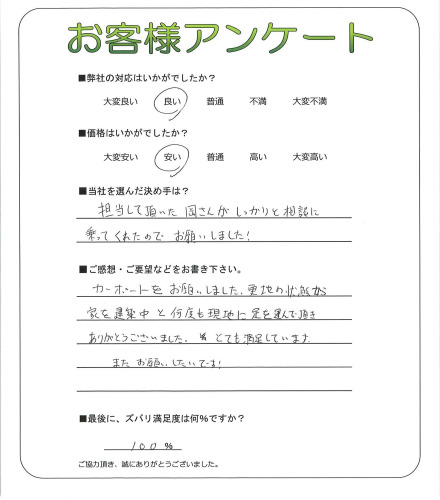 お客様アンケート
■弊社の対応はいかがでしたか?
大変良い 良い 普通 不満 大変不満
■価格はいかがでしたか?
大変安い 安い 普通 高い 大変高い
■当社を選んだ決め手は?
担当して頂いた 岡さんが しっかりと相談に
乗ってくれたので お願いしました!
■ご感想・ご要望などをお書き下さい。
カーポートを お願いしました。更地の状態から
家を建築中 と 何度も 現地に 足を運んで頂き
ありがとうございました。 とても満足しています
また お願いしたいです!
■最後に、ズバリ満足度は何%ですか?
100 %
ご協力頂き、誠にありがとうございました。